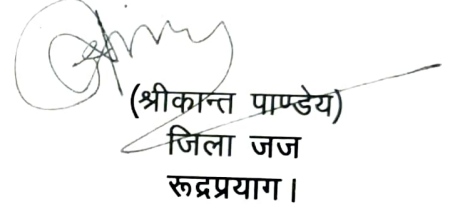 (श्रीकान्त पाण्डेय)
जिला जज
रूद्रप्रयाग।